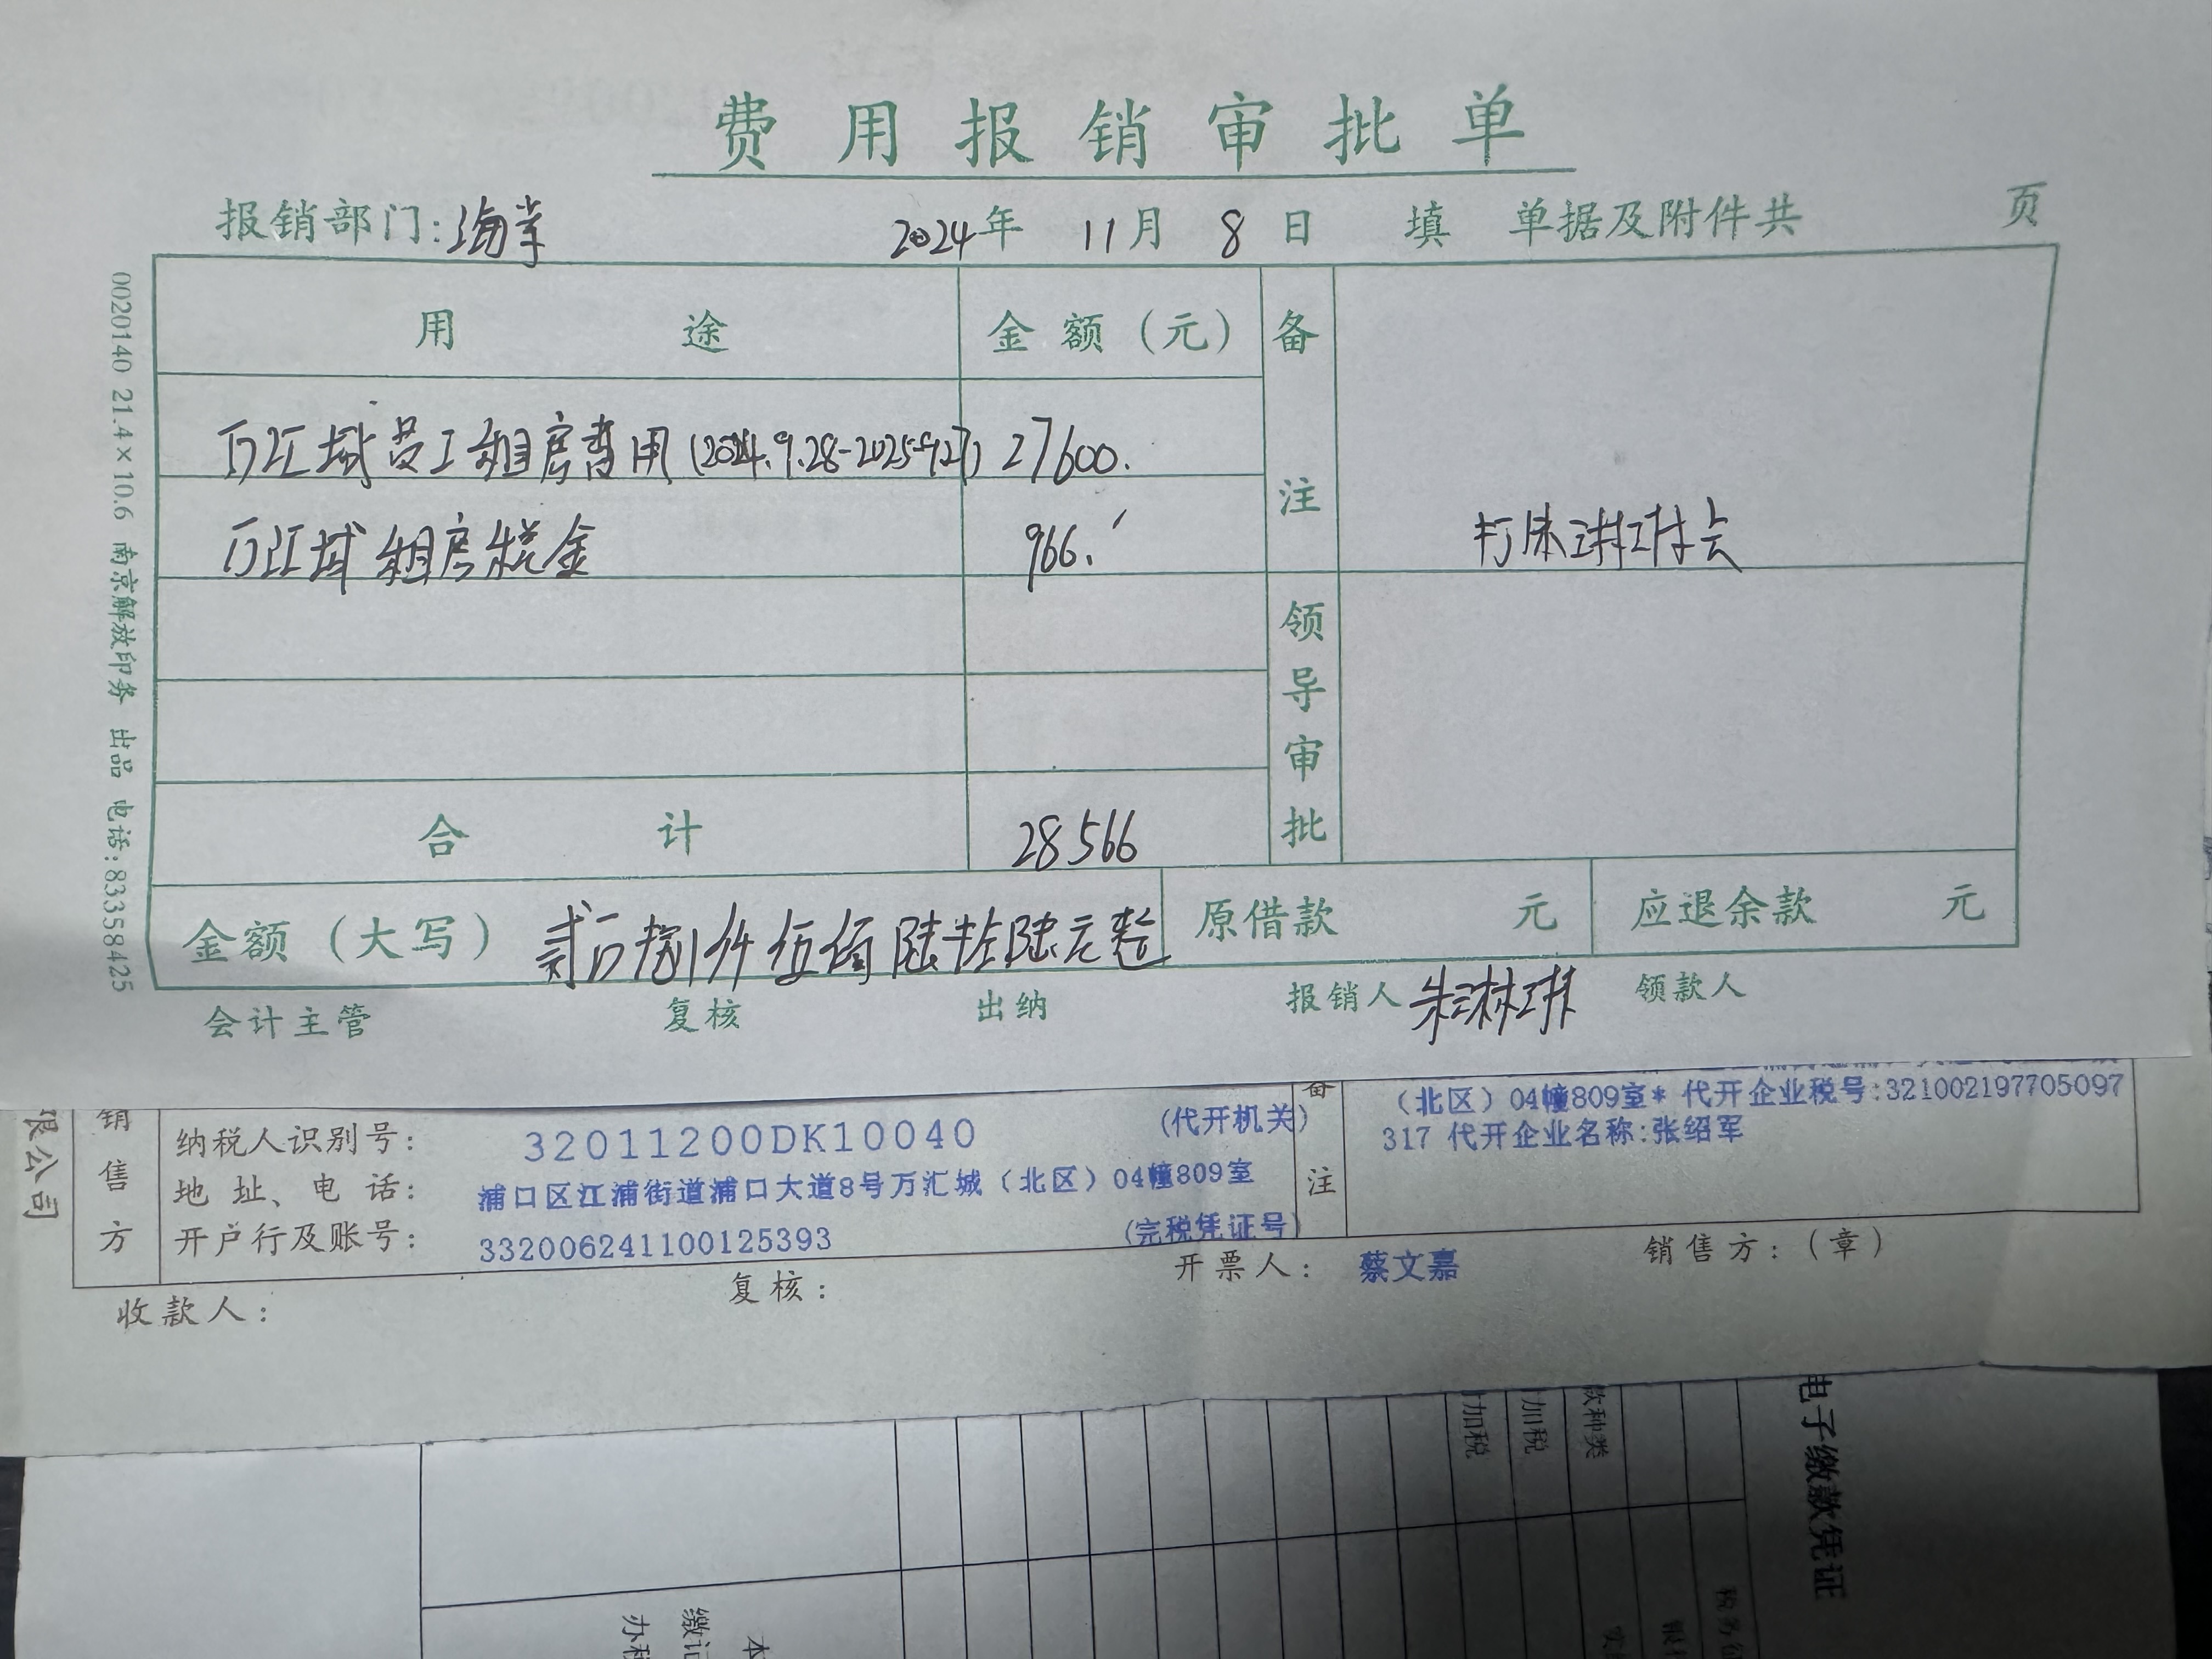 费用报销审批单
报销部门: 2024年 11月 8日 填 单据及附件共 页
用途 金额(元) 备注
万江城员工租房费用(2024.9.28-2025.9.27) 27600.
万江城租房税金 966.
打朱琳琳卡
领导审批
合计 28566
金额(大写) 贰万捌仟伍佰陆拾陆元整 原借款 元 应退余款 元
会计主管 复核 出纳 报销人 朱琳琳 领款人
0020140 21.4×10.6 南京解放印务 出品 电话:83358425
限公司
销售方
纳税人识别号: 32011200DK10040 (代开机关)
地址、电话: 浦口区江浦街道浦口大道8号万汇城(北区)04幢809室
开户行及账号: 332006241100125393 (完税凭证号)
备注
(北区)04幢809室* 代开企业税号:321002197705097
317 代开企业名称:张绍军
收款人: 复核: 开票人: 蔡文嘉 销售方:(章)
电子缴款凭证
款种类
加税
加税